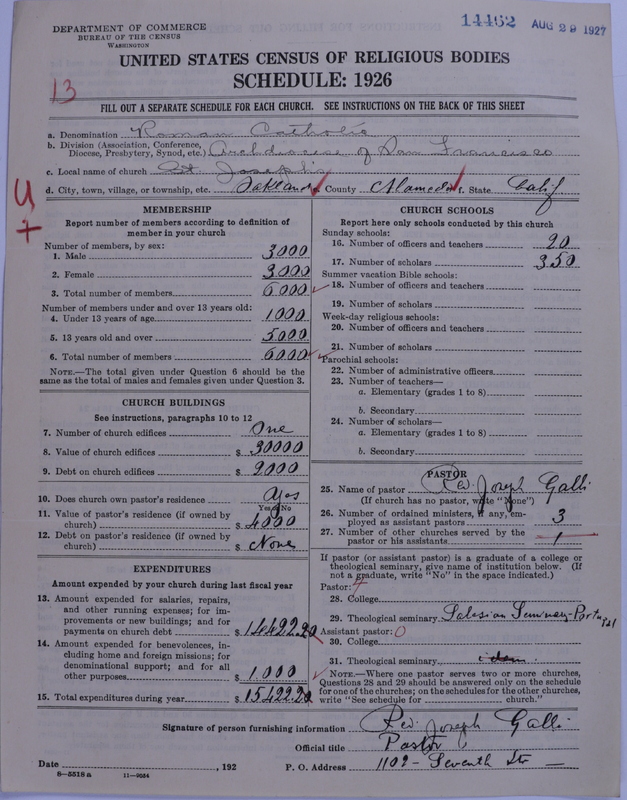 14462 AUG 29 1927
DEPARTMENT OF COMMERCE
BUREAU OF THE CENSUS
WASHINGTON
UNITED STATES CENSUS OF RELIGIOUS BODIES
SCHEDULE: 1926
13
FILL OUT A SEPARATE SCHEDULE FOR EACH CHURCH. SEE INSTRUCTIONS ON THE BACK OF THIS SHEET
a. Denomination Roman Catholic
b. Division (Association, Conference,
Diocese, Presbytery, Synod, etc.) Archdiocese of San Francisco
c. Local name of church St Joseph's
d. City, town, village, or township, etc. Oakland e. County Alameda f. State Calif
U
+
MEMBERSHIP
Report number of members according to definition of
member in your church
Number of members, by sex:
1. Male 3000
2. Female 3000
3. Total number of members 6000
Number of members under and over 13 years old:
4. Under 13 years of age 1000
5. 13 years old and over 5000
6. Total number of members 6000
NOTE.—The total given under Question 6 should be
same as the total of males and females given under Question 3.
CHURCH BUILDINGS
See instructions, paragraphs 10 to 12
7. Number of church edifices One
8. Value of church edifices $ 30000
9. Debt on church edifices $ 9000
10. Does church own pastor's residence Yes
Yes or No
11. Value of pastor's residence (if owned by
church) $ 4000
12. Debt on pastor's residence (if owned by
church) $ None
EXPENDITURES
Amount expended by your church during last fiscal year
13. Amount expended for salaries, repairs,
and other running expenses; for im-
provements or new buildings; and for
payments on church debt $ 14422.20
14. Amount expended for benevolences, in-
cluding home and foreign missions; for
denominational support; and for all
other purposes $ 1000
15. Total expenditures during year $ 15422.20
CHURCH SCHOOLS
Report here only schools conducted by this church
Sunday schools:
16. Number of officers and teachers 20
17. Number of scholars 350
Summer vacation Bible schools:
18. Number of officers and teachers
19. Number of scholars
Week-day religious schools:
20. Number of officers and teachers
21. Number of scholars
Parochial schools:
22. Number of administrative officers
23. Number of teachers—
a. Elementary (grades 1 to 8)
b. Secondary
24. Number of scholars—
a. Elementary (grades 1 to 8)
b. Secondary
PASTOR
25. Name of pastor Rev. Joseph Galli
(If church has no pastor, write "None")
26. Number of ordained ministers, if any, em-
ployed as assistant pastors 3
27. Number of other churches served by the
pastor or his assistants 1
If pastor (or assistant pastor) is a graduate of a college or
theological seminary, give name of institution below. (If
not a graduate, write "No" in the space indicated.)
Pastor:
28. College
29. Theological seminary Salesian Seminary-Portugal
Assistant pastor: 0
30. College
31. Theological seminary idem
NOTE.—Where one pastor serves two or more churches,
Questions 28 and 29 should be answered only on the schedule
for one of the churches; on the schedules for the other churches,
write "See schedule for church."
Signature of person furnishing information Rev. Joseph Galli
Official title Pastor
Date , 192 P. O. Address 1109 - Seventh Str —
8—5518 a 11—9034